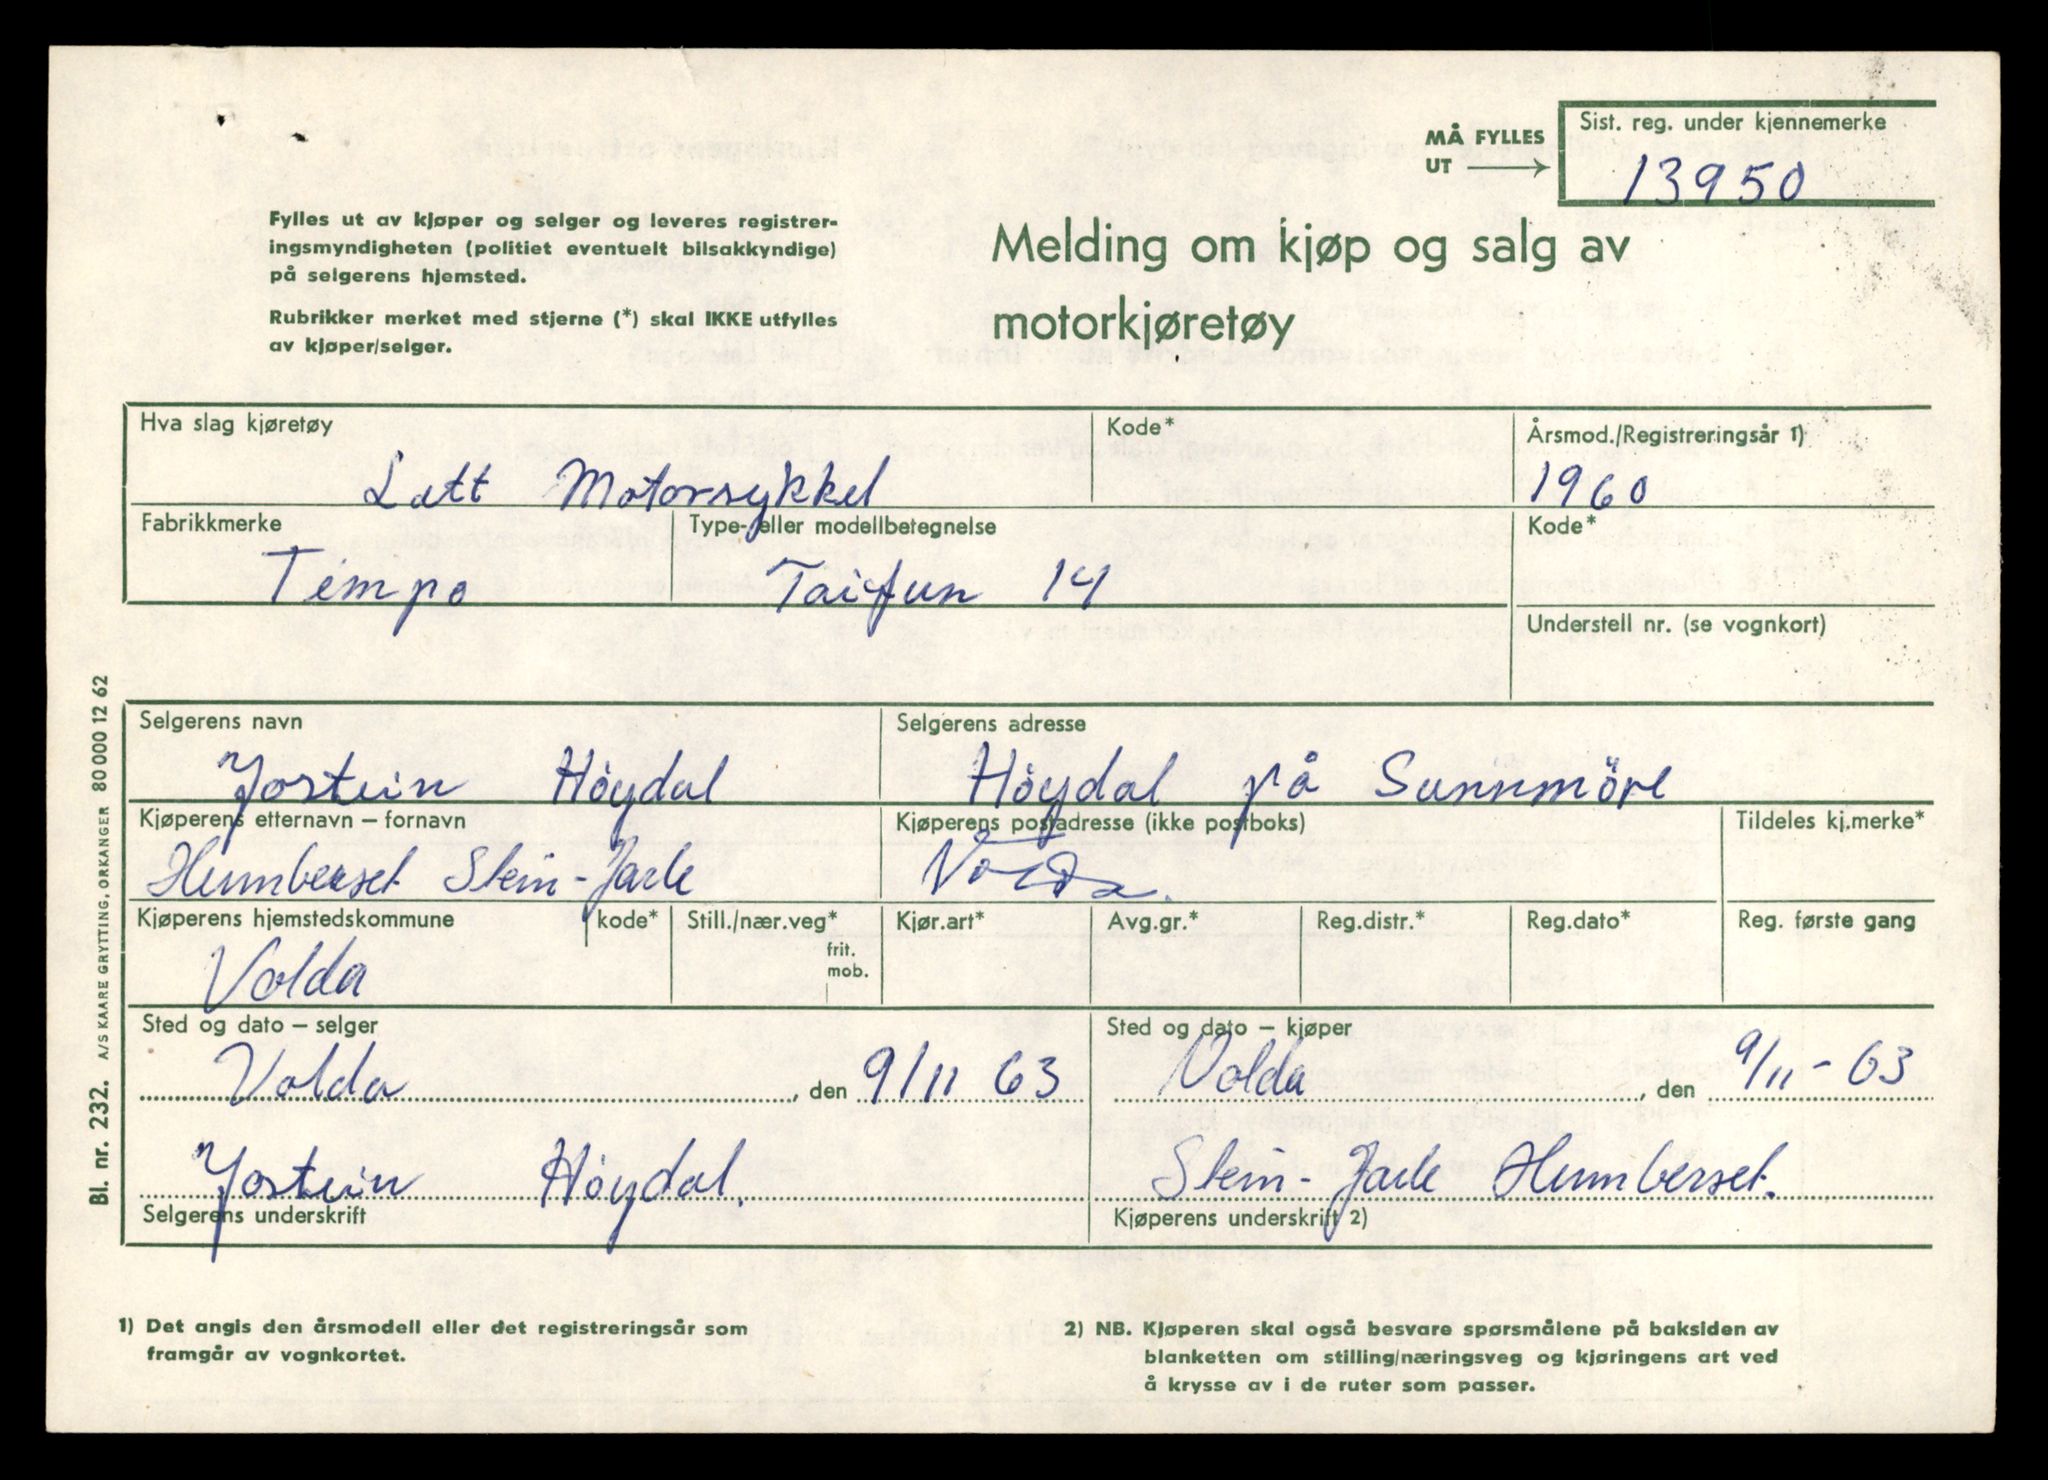 MÅ FYLLES
UT
Sist. reg. under kjennemerke
13950
Fylles ut av kjøper og selger og leveres registrer-
ingsmyndigheten (politiet eventuelt bilsakkyndige)
på selgerens hjemsted.
Rubrikker merket med stjerne (*) skal IKKE utfylles
av kjøper/selger.
Melding om kjøp og salg av
motorkjøretøy
Hva slag kjøretøy Kode* Årsmod./Registreringsår 1)
Lett Motorsykkel 1960
Fabrikkmerke Type- eller modellbetegnelse Kode*
Tempo Taifun 14
Understell nr. (se vognkort)
Selgerens navn Selgerens adresse
Jostein Höydal Höydal på Sunnmöre
Kjøperens etternavn – fornavn Kjøperens postadresse (ikke postboks) Tildeles kj.merke*
Humberset Stein-Jarle Volda.
Kjøperens hjemstedskommune kode* Still./nær.veg* Kjør.art* Avg.gr.* Reg.distr.* Reg.dato* Reg. første gang
frit.
mob.
Volda
Sted og dato – selger Sted og dato – kjøper
Volda , den 9/11 63 Volda , den 9/11-63
Jostein Höydal. Stein-Jarle Humberset.
Selgerens underskrift Kjøperens underskrift 2)
1) Det angis den årsmodell eller det registreringsår som
framgår av vognkortet.
2) NB. Kjøperen skal også besvare spørsmålene på baksiden av
blanketten om stilling/næringsveg og kjøringens art ved
å krysse av i de ruter som passer.
Bl. nr. 232. A/S KAARE GRYTTING, ORKANGER 80 000 12 62